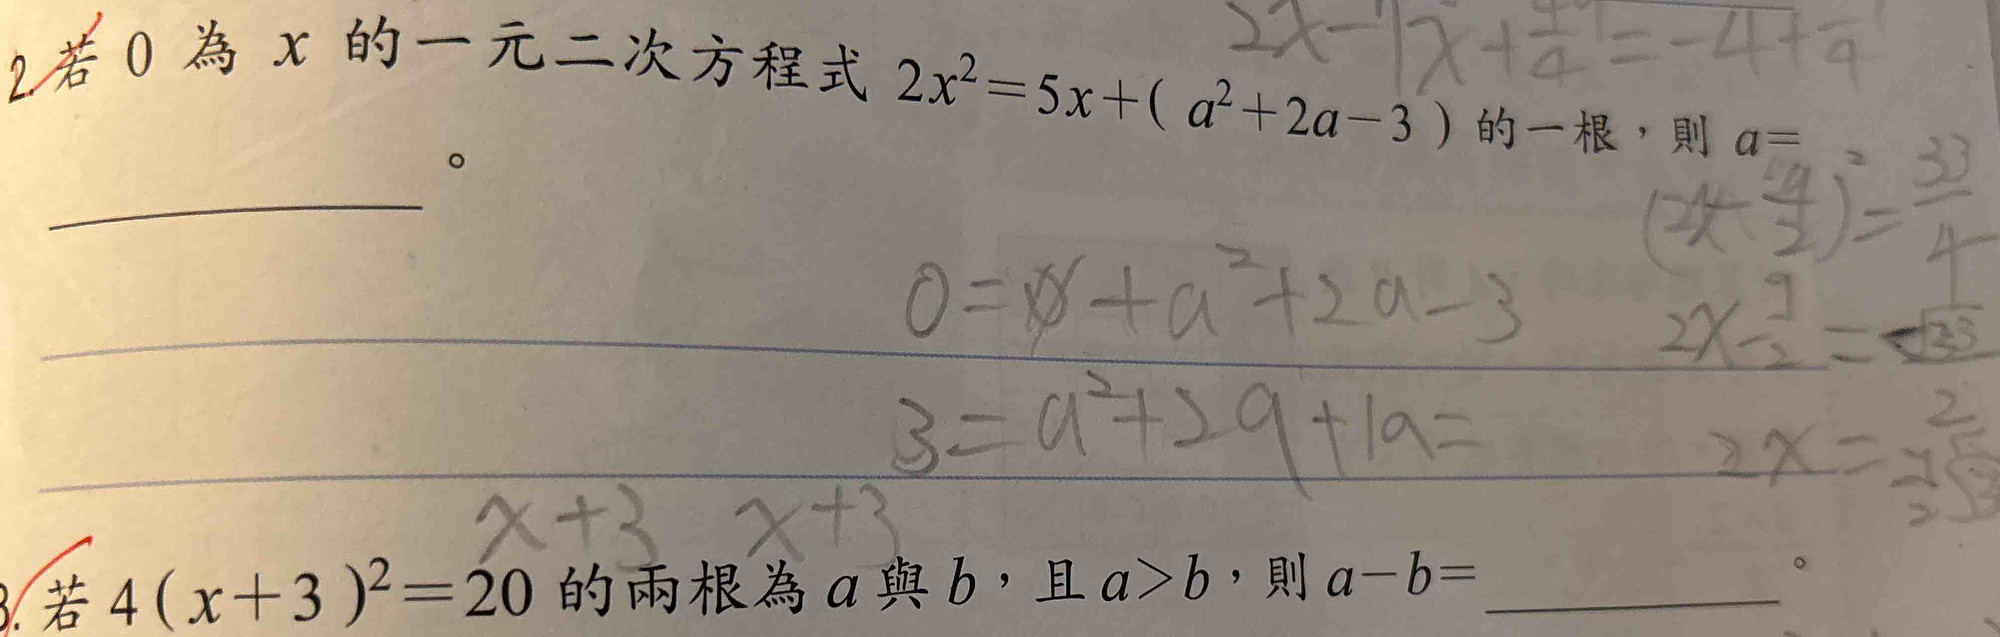 2x-
2.若 0 為 x 的一元二次方程式 2x²=5x+( a²+2a-3 ) 的一根，則 a=
。
(2x-9/2)²=33/4
0=0+a²+2a-3
2x-9/2=√33/2
3=a²+2a+1a=
2x=
x+3 x+3
3.若 4(x+3)²=20 的兩根為 a 與 b，且 a>b，則 a-b= 。